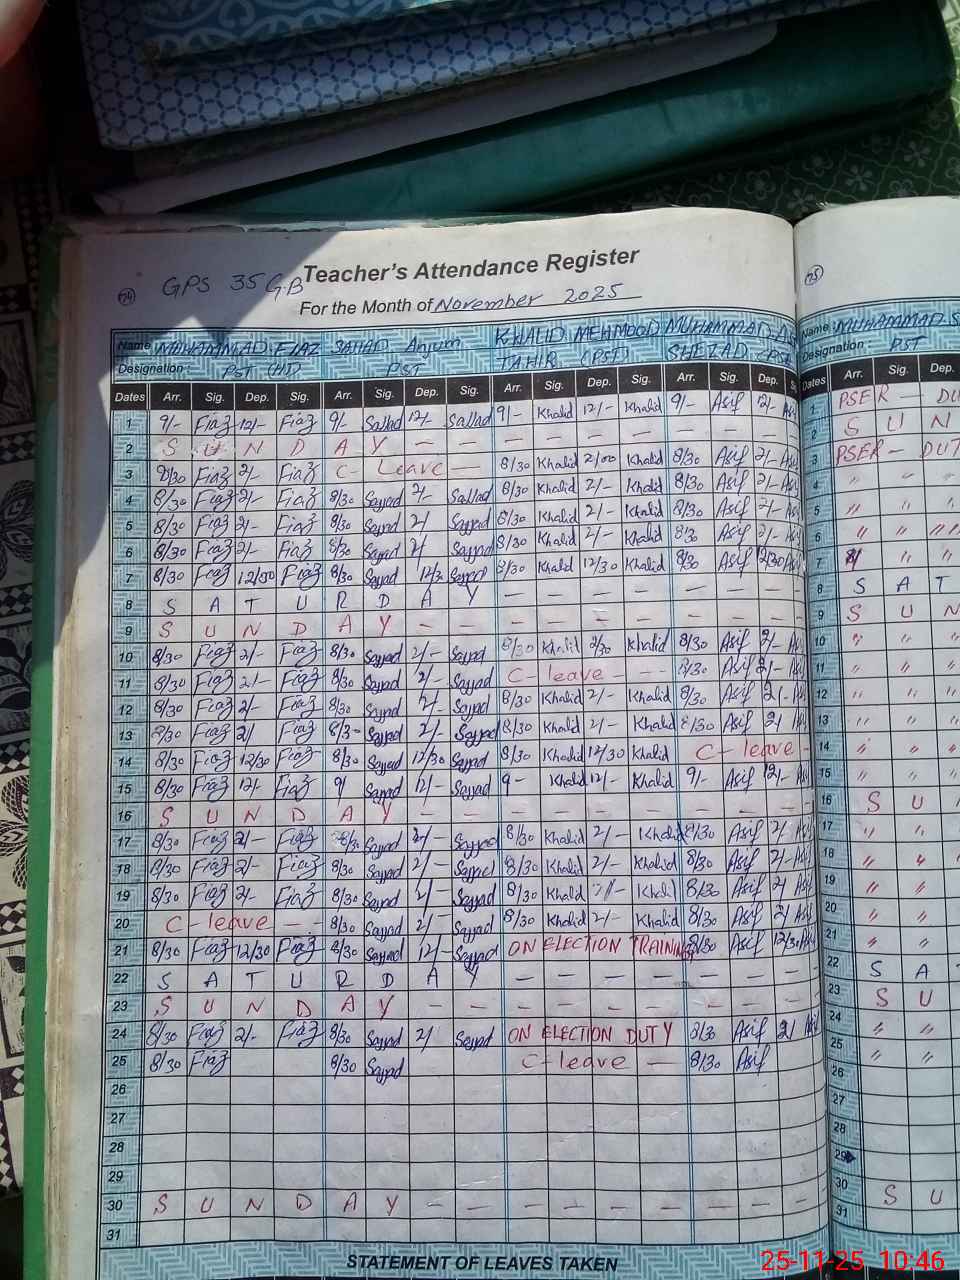 74 GPS 35 GB Teacher's Attendance Register
For the Month of November 2025
75
Name MUHAMMAD FIAZ SAJJAD Anjum KHALID MEHMOOD MUHAMMAD Name MUHAMMAD S
Designation: PST (HT) PST TAHIR (PST) SHEZAD (PST Designation: PST
Dates Arr. Sig. Dep. Sig. Arr. Sig. Dep. Sig. Arr. Sig. Dep. Sig. Arr. Sig. Dep. Si Dates Arr. Sig. Dep.
1 9/- Fiaz 12/- Fiaz 9/- Sajjad 12/- Sajjad 9/- Khalid 12/- Khalid 9/- Asif 12/- Asi 1 PSER — DU
2 S U N D A Y — — — — — — — — — 2 S U N
3 8/30 Fiaz 2/- Fiaz C- Leave — 8/30 Khalid 2/00 Khalid 8/30 Asif 2/- Asi 3 PSER — DUT
4 8/30 Fiaz 2/- Fiaz 8/30 Sajjad 2/- Sajjad 8/30 Khalid 2/- Khalid 8/30 Asif 2/- Asi 4 " " "
5 8/30 Fiaz 2/- Fiaz 8/30 Sajjad 2/ Sajjad 8/30 Khalid 2/- Khalid 8/30 Asif 2/- Asi 5 " " "
6 8/30 Fiaz 2/- Fiaz 8/30 Sajjad 2/ Sajjad 8/30 Khalid 2/- Khalid 8/30 Asif 2/- Asi 6 " " "
7 8/30 Fiaz 12/30 Fiaz 8/30 Sajjad 12/30 Sajjad 8/30 Khalid 12/30 Khalid 8/30 Asif 12/30 Asi 7 " "
8 S A T U R D A Y — — — — — — — 8 S A T
9 S U N D A Y — — — — — — — — — 9 S U N
10 8/30 Fiaz 2/- Fiaz 8/30 Sajjad 2/- Sajjad 8/30 Khalid 2/30 Khalid 8/30 Asif 2/- Asi 10 " " "
11 8/30 Fiaz 2/- Fiaz 8/30 Sajjad 2/- Sajjad C- leave - - 8/30 Asif 2/- Asi 11 " " "
12 8/30 Fiaz 2/- Fiaz 8/30 Sajjad 2/- Sajjad 8/30 Khalid 2/- Khalid 8/30 Asif 2/- Asi 12 " " "
13 8/30 Fiaz 2/ Fiaz 8/3- Sajjad 2/- Sajjad 8/30 Khalid 2/- Khalid 8/30 Asif 2/ Asi 13 " " "
14 8/30 Fiaz 12/30 Fiaz 8/30 Sajjad 12/30 Sajjad 8/30 Khalid 12/30 Khalid C- leave - 14 " " "
15 8/30 Fiaz 12/- Fiaz 9/ Sajjad 12/- Sajjad 9- Khalid 12/- Khalid 9/- Asif 12/- Asi 15 " " "
16 S U N D A Y — — — — — — — — — 16 S U
17 8/30 Fiaz 2/- Fiaz 8/30 Sajjad 2/- Sajjad 8/30 Khalid 2/- Khalid 8/30 Asif 2/ Asi 17 " "
18 8/30 Fiaz 2/- Fiaz 8/30 Sajjad 2/- Sajjad 8/30 Khalid 2/- Khalid 8/30 Asif 2/- Asi 18 " "
19 8/30 Fiaz 2/- Fiaz 8/30 Sajjad 2/- Sajjad 8/30 Khalid 2/- Khalid 8/30 Asif 2/ Asi 19 " "
20 C- leave — 8/30 Sajjad 2/- Sajjad 8/30 Khalid 2/- Khalid 8/30 Asif 2/ Asif 20 " "
21 8/30 Fiaz 12/30 Fiaz 8/30 Sajjad 12/- Sajjad ON ELECTION TRAINING 8/30 Asif 12/30 Asi 21 " "
22 S A T U R D A Y — — — — — — — 22 S A T
23 S U N D A Y — — — — — — — — 23 S U
24 8/30 Fiaz 2/- Fiaz 8/30 Sajjad 2/ Sajjad ON ELECTION DUTY 8/30 Asif 2/ Asif 24 " "
25 8/30 Fiaz 8/30 Sajjad C- leave — 8/30 Asif 25 " "
26 26
27 27
28 28
29 29
30 S U N D A Y — — — — — — — — — 30 S U
31 31
STATEMENT OF LEAVES TAKEN
25-11-25 10:46